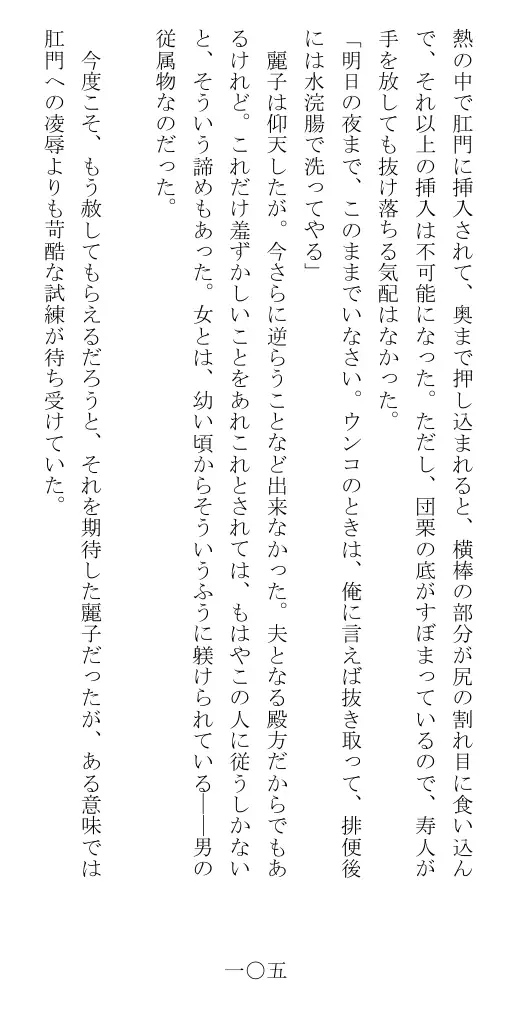 熱の中で肛門に挿入されて、奥まで押し込まれると、横棒の部分が尻の割れ目に食い込ん
で、それ以上の挿入は不可能になった。ただし、団栗の底がすぼまっているので、寿人が
手を放しても抜け落ちる気配はなかった。
「明日の夜まで、このままでいなさい。ウンコのときは、俺に言えば抜き取って、排便後
には水浣腸で洗ってやる」
麗子は仰天したが。今さらに逆らうことなど出来なかった。夫となる殿方だからでもあ
るけれど。これだけ羞ずかしいことをあれこれとされては、もはやこの人に従うしかない
と、そういう諦めもあった。女とは、幼い頃からそういうふうに躾けられている――男の
従属物なのだった。
今度こそ、もう赦してもらえるだろうと、それを期待した麗子だったが、ある意味では
肛門への凌辱よりも苛酷な試練が待ち受けていた。
一〇五